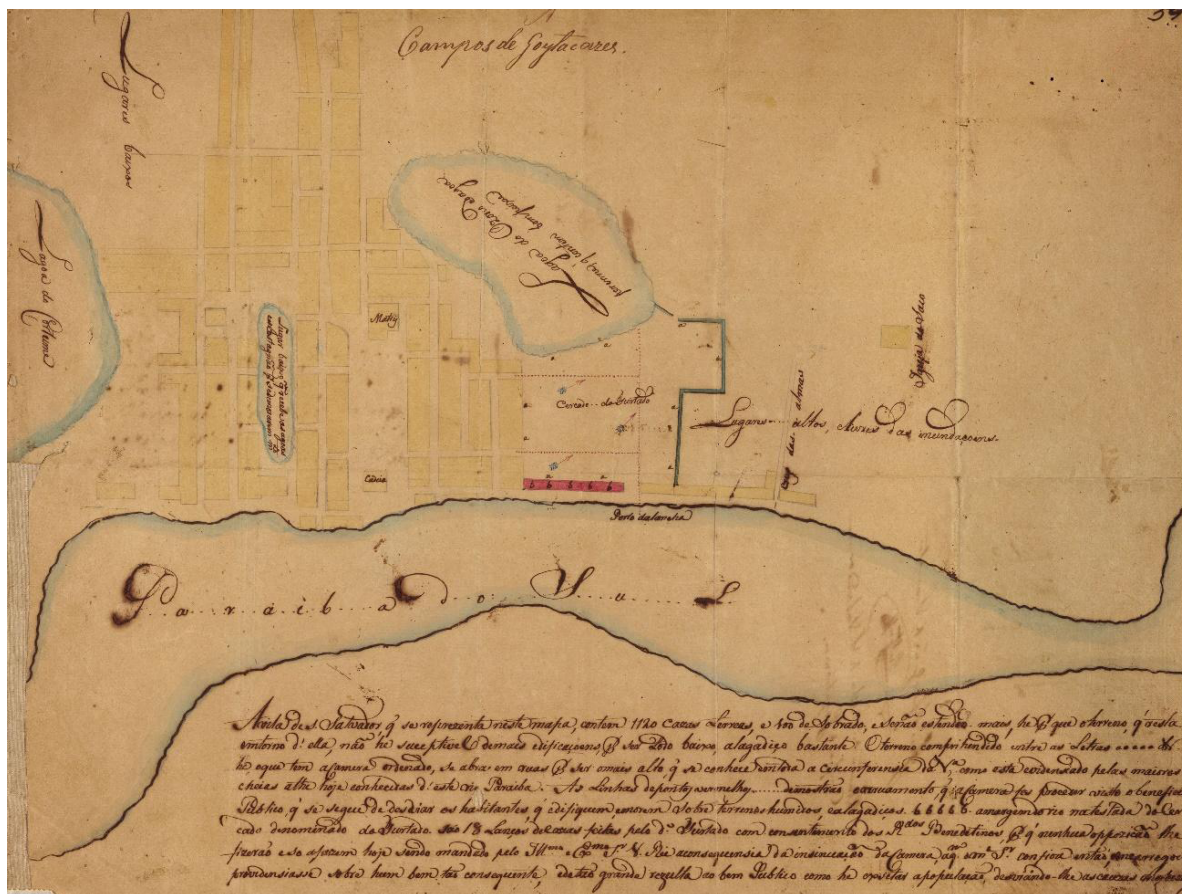 59
Campos de Goytacazes.
Lugares baixos
Lagoa do
Lagoa do Ozorio
Lugar baixo
Matriz
Cadeia
Cercado do Furtado
a a a
b b b b b b
Porto da Lancha
Lugares altos, livres das inundacoens.
das almas
Igreja do Saco
Paraiba Do Sul
A villa de S. Salvador q̃ se reprezenta neste mapa, contem 1120 cazas terreas, e 100 de Sobrado, e senaõ estende mais, he q̃ o terreno, q̃ resta
emtorno d'ella, naõ he suceptivel demais edificaçoens, ser todo baixo, alagadiço bastante. O terreno comprehendido entre as Letras
he, o que tem a Camera ordenado, se abra em ruas ser o mais alto q̃ se conhece em toda a circunferencia da V.ª, como está evidensado pelas maiores
cheias athe hoje conhecidas d'este rio Paraiba. As Linhas de pontos vermelhos demostraõ o arruamento, q̃ a Camera fes proceder visto o beneficio
Publico, q̃ se segue de desviar os habitantes, q̃ edifiquem, e morem sobre terrenos humidos e alagadiços. b b b b b a margem do rio na testada do Cer-
cado denominado do Furtado, saõ 13 Lanços de cazas feitas pelo d.º Furtado com consentimento dos R.dos Beneditinos, q̃ nenhuma opposiçaõ lhe
fizeraõ e so a fazem hoje sendo mandado pelo Ill.mo e Ex.mo S.r V. Rei a consequensia da insinuaçaõ da Camera,
providensiasse sobre hum bem taõ consequente, e de taõ grande rezulta ao bem Publico como he